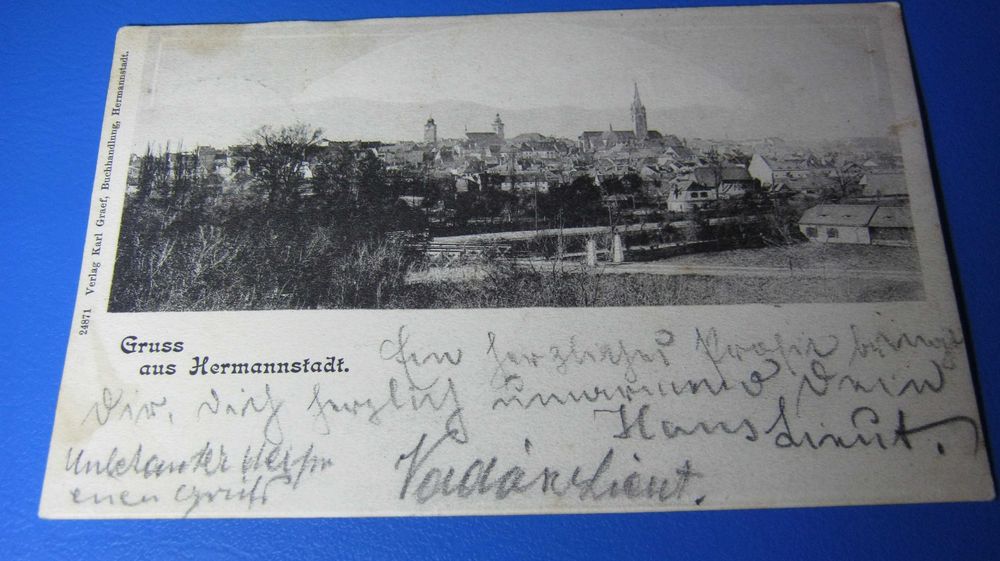 24871 Verlag Karl Graef, Buchhandlung, Hermannstadt.
Gruss
aus Hermannstadt.
Ein herzliches Prosit bringt
Dir, dich herzlich umarmend Dein
Hans Lieut.
Unbekannter
einen Gruß
Vadász Lieut.